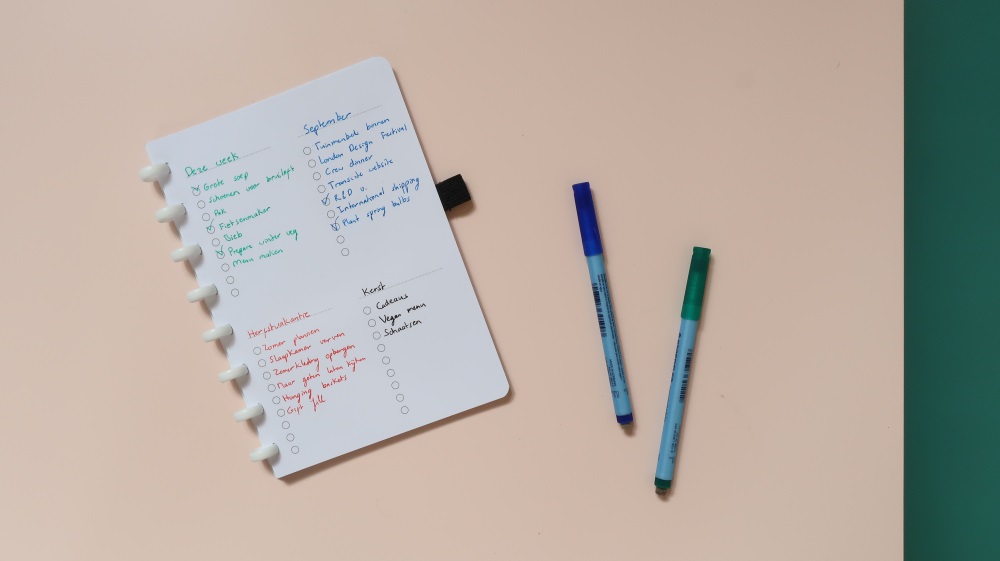 Deze week
Grote soep
Schoenen voor bruiloft
Pak
Fietsenmaker
Bieb
Prepare winter veg
Menu maken
September
Tuinmeubels binnen
London Design Festival
Crew dinner
Translate website
R&D
International shipping
Plant spring bulbs
Herfstvakantie
Zomer plannen
Slaapkamer verven
Zomerkleding opbergen
Naar laten kijken
Hanging baskets
Gift
Kerst
Cadeaus
Vegan menu
Schaatsen